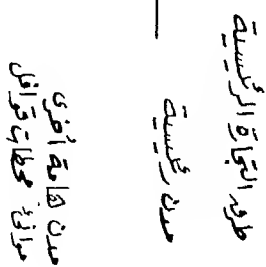 طرق التجارة الرئيسية
مدن رئيسية
مدن هامة أخرى
موانئ محطات قوافل